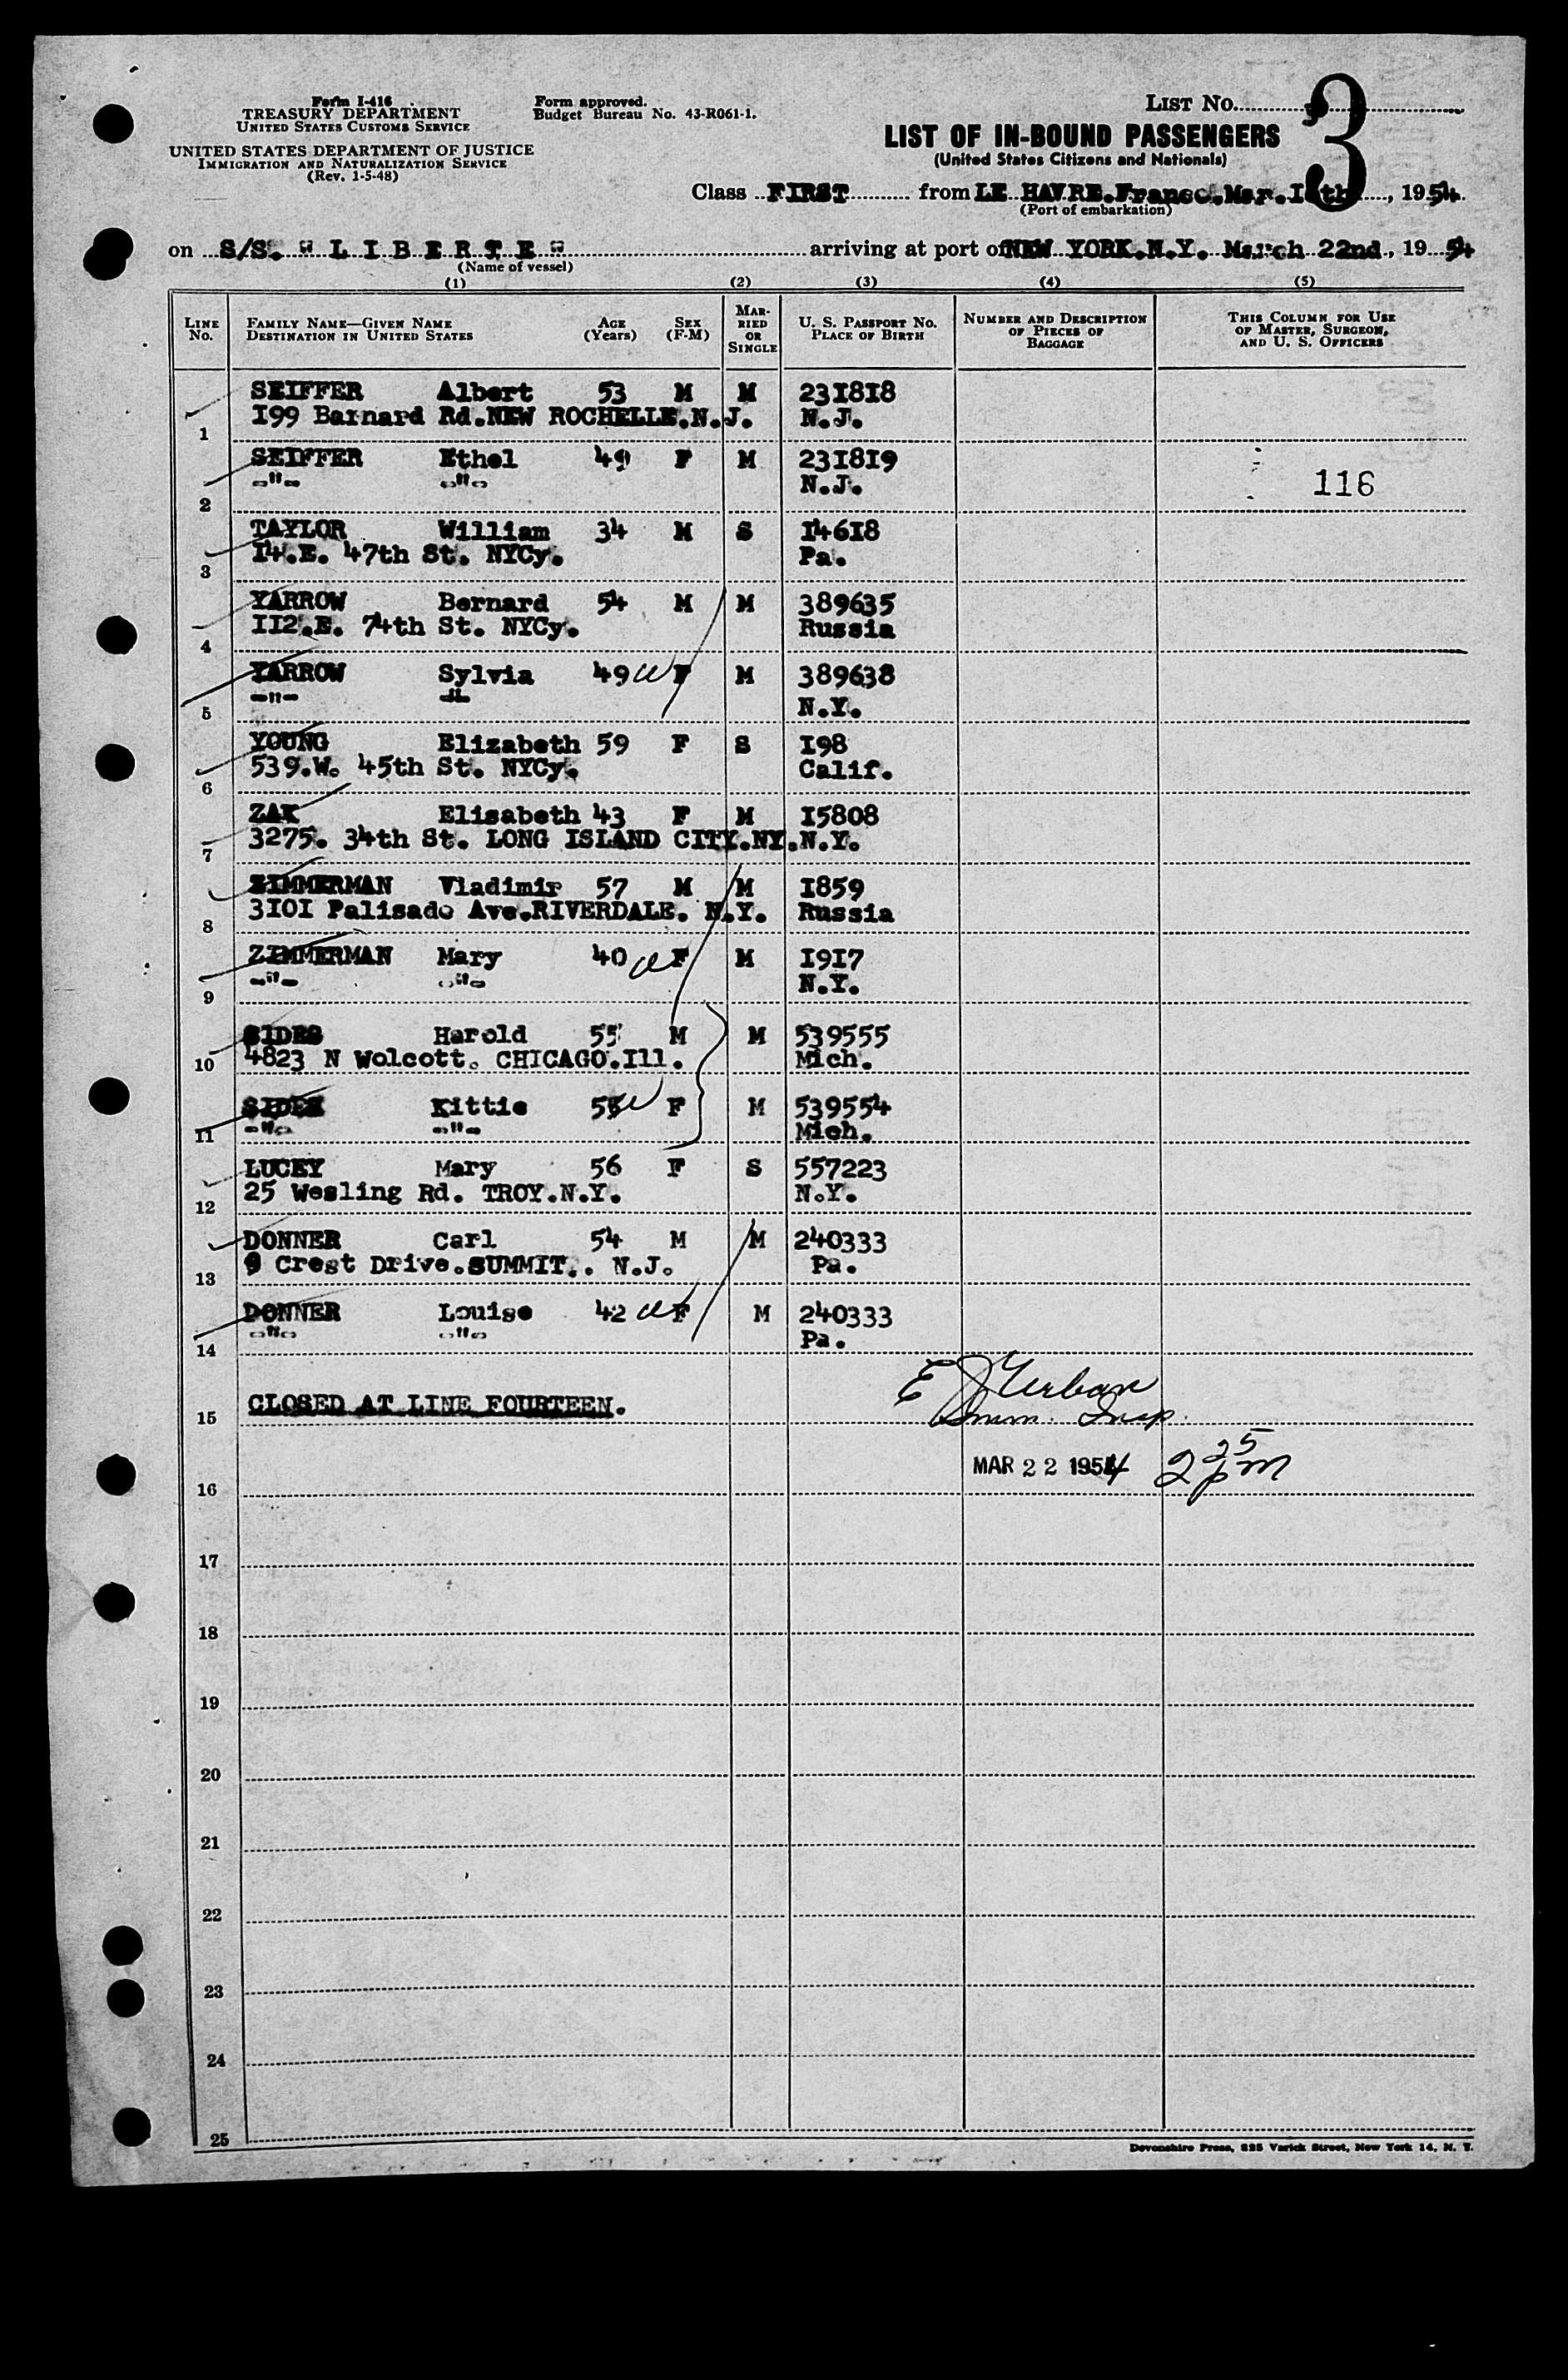 Form I-416
TREASURY DEPARTMENT
UNITED STATES CUSTOMS SERVICE
UNITED STATES DEPARTMENT OF JUSTICE
IMMIGRATION AND NATURALIZATION SERVICE
(Rev. 1-5-48)
Form approved.
Budget Bureau No. 43-R061-1.
LIST NO. 3
LIST OF IN-BOUND PASSENGERS
(United States Citizens and Nationals)
Class FIRST from LE HAVRE.France.Mar. , 1954
(Port of embarkation)
on S/S. "LIBERTE" arriving at port of NEW YORK.N.Y. March 22nd, 1954
(Name of vessel)
(1) (2) (3) (4) (5)
LINE No. FAMILY NAME—GIVEN NAME DESTINATION IN UNITED STATES AGE (Years) SEX (F-M) MARRIED OR SINGLE U. S. PASSPORT NO. PLACE OF BIRTH NUMBER AND DESCRIPTION OF PIECES OF BAGGAGE THIS COLUMN FOR USE OF MASTER, SURGEON, AND U. S. OFFICERS
SEIFFER Albert 53 M M 231818
1 199 Barnard Rd.NEW ROCHELLE.N.J. N.J.
SEIFFER Ethel 49 F M 231819
2 -"- -"- N.J. 116
TAYLOR William 34 M S 14618
3 14.E. 47th St. NYCy. Pa.
YARROW Bernard 54 M M 389635
4 112.E. 74th St. NYCy. Russia
YARROW Sylvia 49 F M 389638
5 -"- -"- N.Y.
YOUNG Elizabeth 59 F S 198
6 539.W. 45th St. NYCy. Calif.
ZAK Elisabeth 43 F M 15808
7 3275. 34th St. LONG ISLAND CITY.NY. N.Y.
ZIMMERMAN Vladimir 57 M M 1859
8 3101 Palisade Ave.RIVERDALE. N.Y. Russia
ZIMMERMAN Mary 40 F M 1917
9 -"- -"- N.Y.
SIDES Harold 55 M M 539555
10 4823 N Wolcott. CHICAGO.Ill. Mich.
SIDES Kittie 55 F M 539554
11 -"- -"- Mich.
LUCEY Mary 56 F S 557223
12 25 Wesling Rd. TROY.N.Y. N.Y.
DONNER Carl 54 M M 240333
13 9 Crest Drive.SUMMIT.. N.J. Pa.
DONNER Louise 42 F M 240333
14 -"- -"- Pa.
15 CLOSED AT LINE FOURTEEN.
Imm. Insp.
16 MAR 22 1954 2 25 pm
17
18
19
20
21
22
23
24
25
Devonshire Press, 225 Varick Street, New York 14, N. Y.